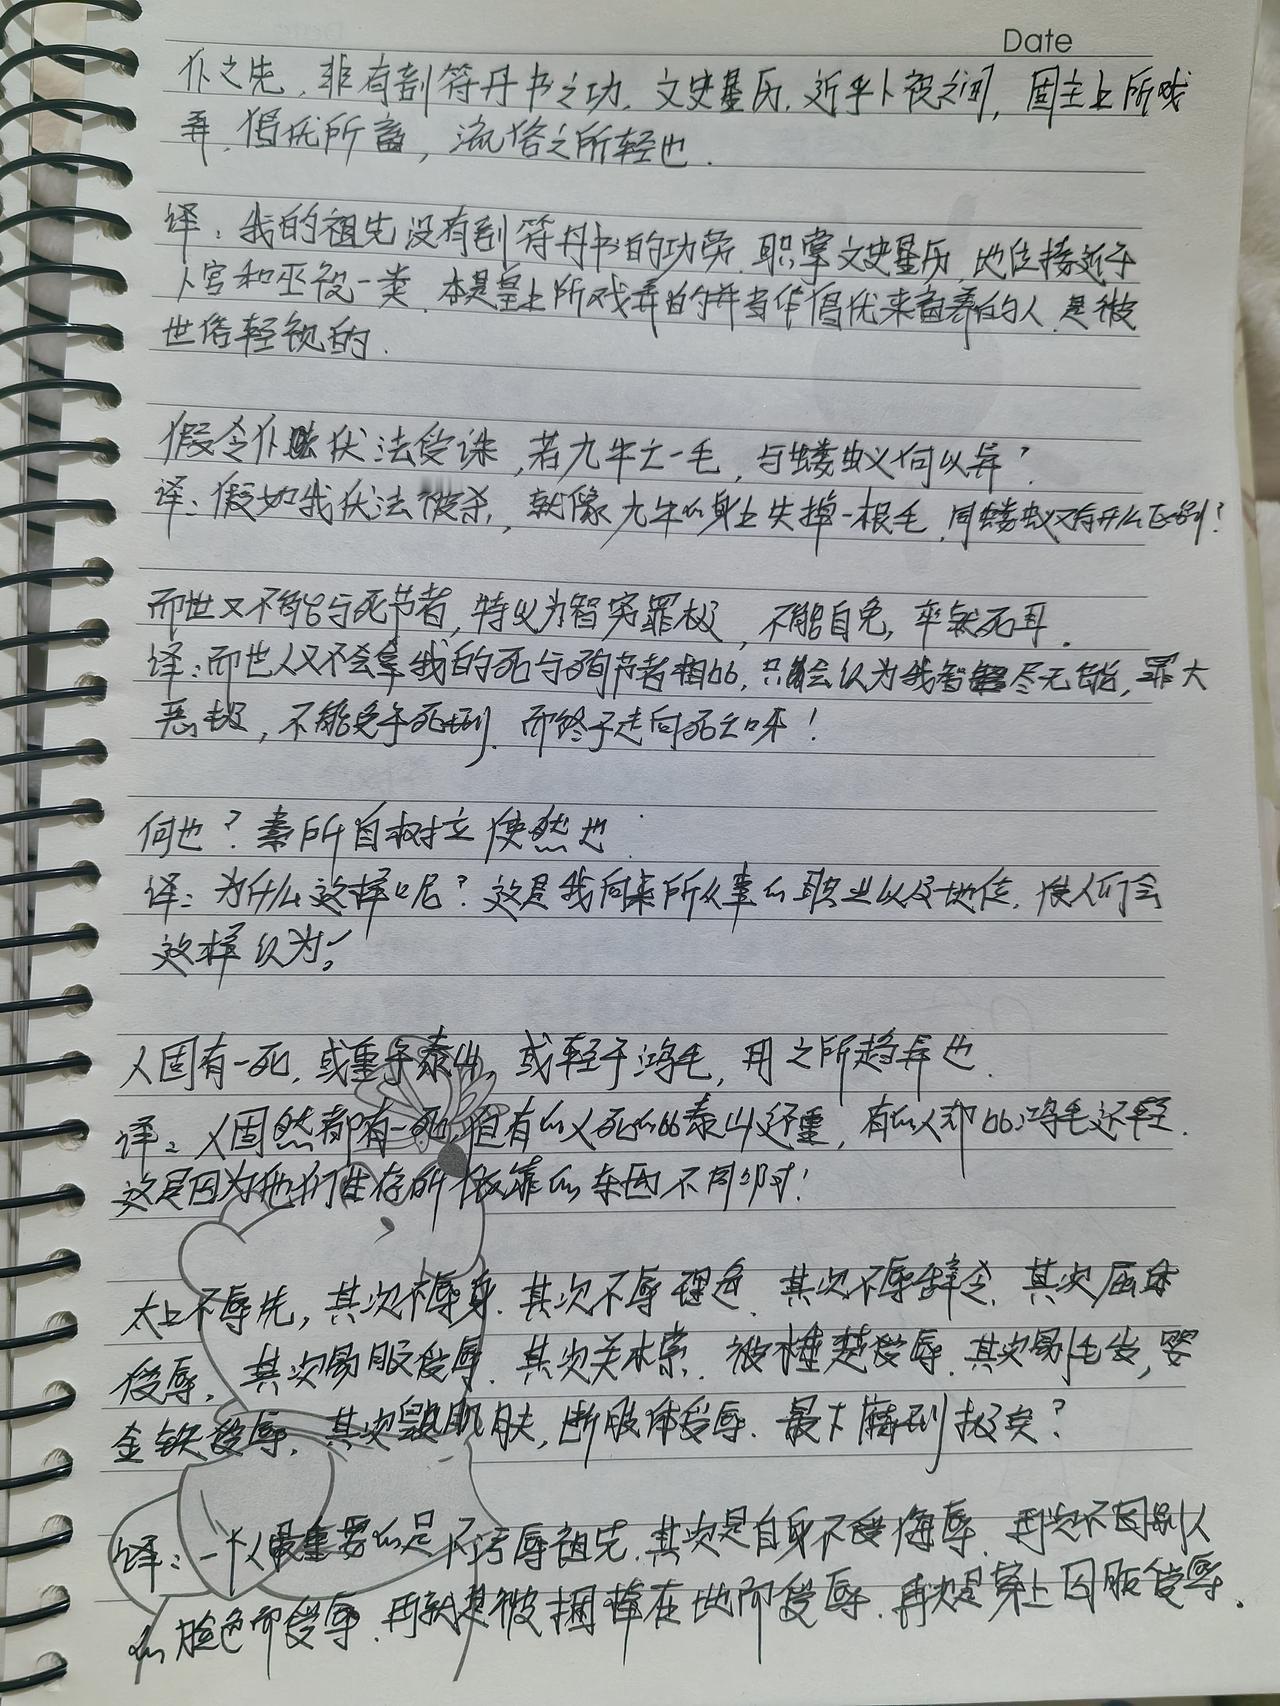 Date
仆之先，非有剖符丹书之功，文史星历，近乎卜祝之间，固主上所戏
弄，倡优所畜，流俗之所轻也。
译：我的祖先没有剖符丹书的功劳，职掌文史星历，地位接近于
卜官和巫祝一类，本是皇上所戏弄的并当作倡优来畜养的人，是被
世俗轻视的。
假令仆伏法受诛，若九牛亡一毛，与蝼蚁何以异？
译：假如我伏法被杀，就像九牛的身上失掉一根毛，同蝼蚁又有什么区别？
而世又不能与死节者，特以为智穷罪极，不能自免，卒就死耳。
译：而世人又不会拿我的死与殉节者相比，只会认为我智尽无能，罪大
恶极，不能免于死刑，而终于走向死亡呀！
何也？素所自树立使然也。
译：为什么这样呢？这是我向来所从事的职业以及地位，使人们会
这样认为。
人固有一死，或重于泰山，或轻于鸿毛，用之所趋异也。
译：人固然都有一死，但有的人死的比泰山还重，有的人却比鸿毛还轻。
这是因为他们生存所依靠的东西不同啊！
太上不辱先，其次不辱身，其次不辱理色，其次不辱辞令，其次屈体
受辱，其次易服受辱，其次关木索，被棰楚受辱，其次剔毛发，婴
金铁受辱，其次毁肌肤，断肢体受辱，最下腐刑极矣？
译：一个人最重要的是不污辱祖先，其次是自身不受侮辱，再次不因别人
的脸色而受辱，再次是被捆绑在地而受辱，再次是穿上囚服受辱。